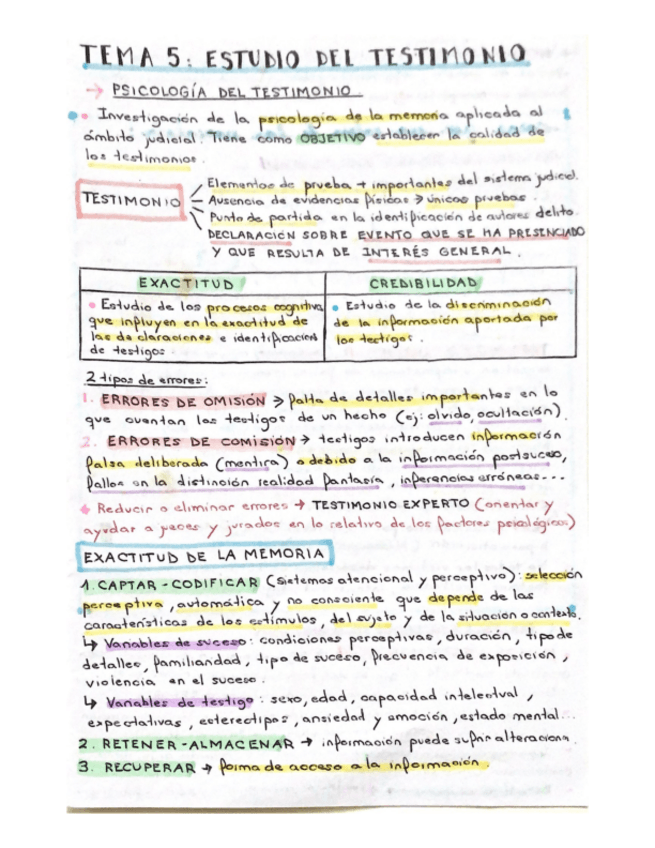 TEMA 5: ESTUDIO DEL TESTIMONIO
→ PSICOLOGÍA DEL TESTIMONIO
• Investigación de la psicología de la memoria aplicada al
ámbito judicial. Tiene como OBJETIVO establecer la calidad de
los testimonios.
TESTIMONIO
Elementos de prueba + importantes del sistema judicial.
Ausencia de evidencias físicas → únicas pruebas.
Punto de partida en la identificación de autores delito.
DECLARACIÓN SOBRE EVENTO QUE SE HA PRESENCIADO
Y QUE RESULTA DE INTERÉS GENERAL.
EXACTITUD
• Estudio de los procesos cognitivos
que influyen en la exactitud de
las declaraciones e identificación
de testigos.
CREDIBILIDAD
• Estudio de la discriminación
de la información aportada por
los testigos.
2 tipos de errores:
1. ERRORES DE OMISIÓN → falta de detalles importantes en lo
que cuentan los testigos de un hecho (ej: olvido, ocultación).
2. ERRORES DE COMISIÓN → testigos introducen información
falsa deliberada (mentira) o debido a la información postsuceso,
fallos en la distinción realidad fantasía, inferencias erróneas...
Reducir o eliminar errores → TESTIMONIO EXPERTO (orientar y
ayudar a jueces y jurados en lo relativo de los factores psicológicos)
EXACTITUD DE LA MEMORIA
1. CAPTAR-CODIFICAR (sistemas atencional y perceptivo): selección
perceptiva, automática y no consciente que depende de las
características de los estímulos, del sujeto y de la situación o contexto.
↳ Variables de suceso: condiciones perceptivas, duración, tipo de
detalles, familiaridad, tipo de suceso, frecuencia de exposición,
violencia en el suceso.
↳ Variables de testigo: sexo, edad, capacidad intelectual,
expectativas, estereotipos, ansiedad y emoción, estado mental...
2. RETENER-ALMACENAR → información puede sufrir alteraciones.
3. RECUPERAR → forma de acceso a la información.